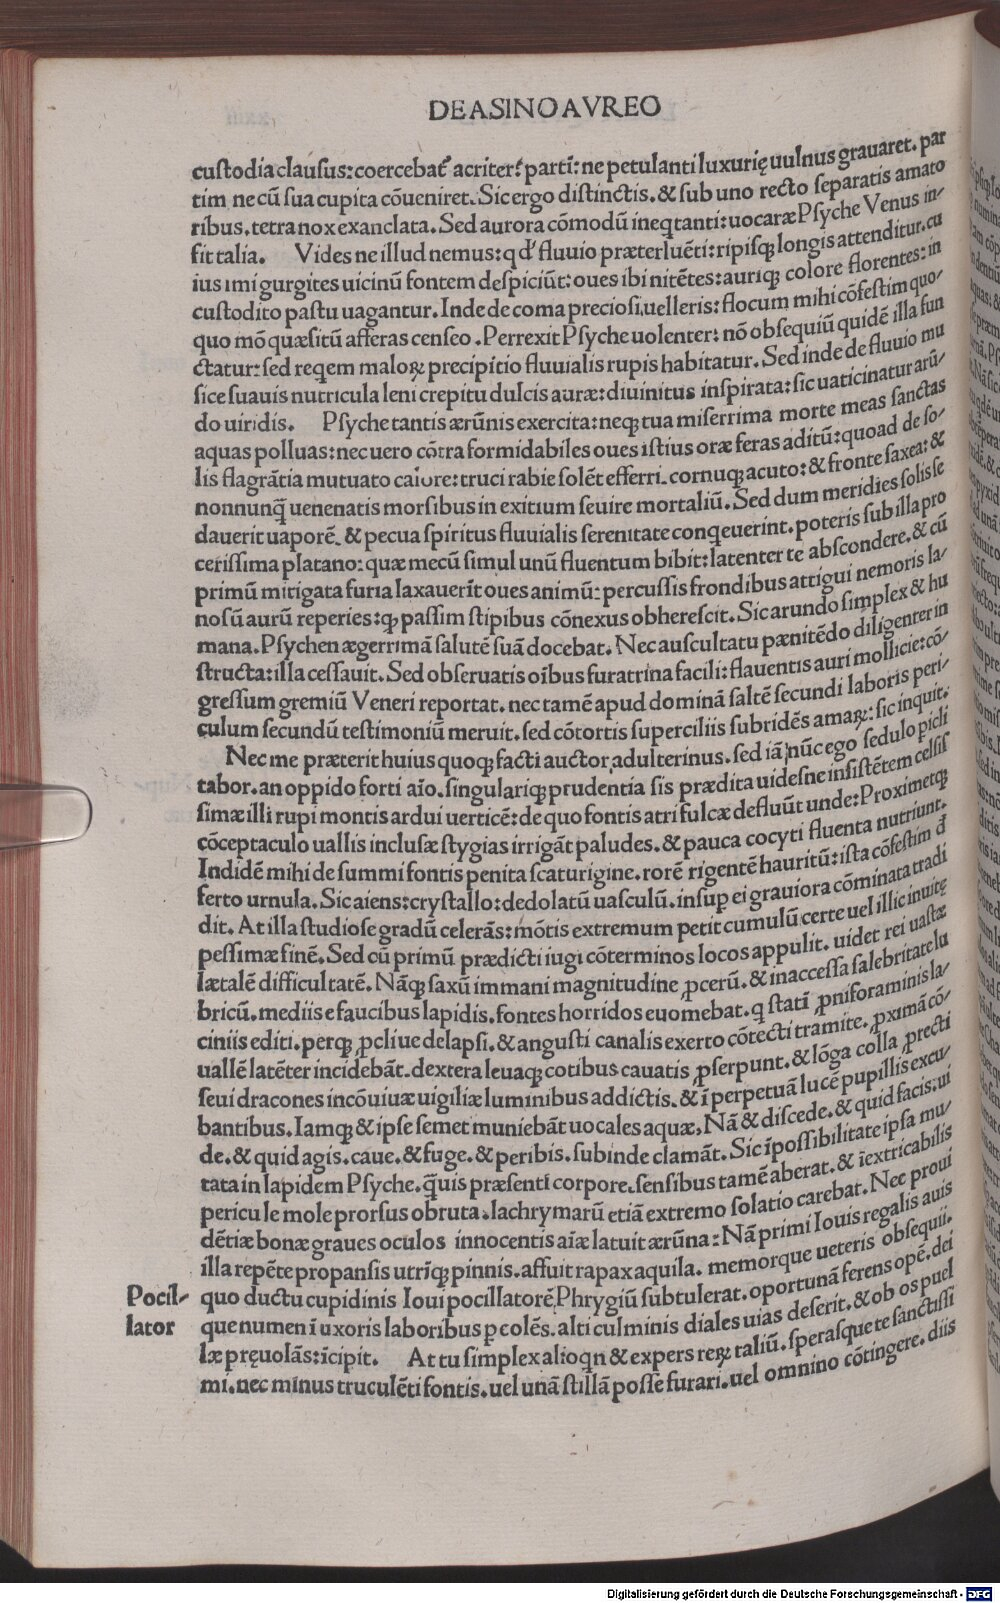 DE ASINO AVREO
custodia clausus: coercebat᷑ acriter: partī: ne petulanti luxurię uulnus grauaret. par
tim ne cū sua cupita cōueniret. Sic ergo distinctis. & sub uno recto separatis amato
ribus. tetra nox exanclata. Sed aurora cōmodū ineqtanti: uocaræ Psyche Venus in-
fit talia. Vides ne illud nemus: qd' fluuio præterluēti: ripisq; longis attenditur. cu
ius imi gurgites uicinū fontem despiciūt: oues ibi nitētes: auriq; colore florentes: in
custodito pastu uagantur. Inde de coma preciosi uelleris: flocum mihi cōfestim quo-
quo mō quæsitū afferas censeo. Perrexit Psyche uolenter: nō obsequiū quidē illa fun
ctatur: sed reqem maloꝝ precipitio fluuialis rupis habitatur. Sed inde de fluuio mu
sice suauis nutricula leni crepitu dulcis auræ: diuinitus inspirata: sic uaticinatur arū-
do uiridis. Psyche tantis ærūnis exercita: neq; tua miserrima morte meas sanctas
aquas polluas: nec uero cōtra formidabiles oues istius oræ feras aditū: quoad de so-
lis flagrātia mutuato calore: truci rabie solēt efferri. cornuq; acuto: & fronte saxea: &
nonnunq̄ uenenatis morsibus in exitium seuire mortaliū. Sed dum meridies solis se
dauerit uaporē. & pecua spiritus fluuialis serenitate conqeuerint. poteris sub illa pro
cerissima platano: quæ mecū simul unū fluentum bibit: latenter te abscondere. & cū
primū mitigata furia laxauerit oues animū: percussis frondibus attigui nemoris la-
nosū aurū reperies: q̨ passim stipibus cōnexus obherescit. Sic arundo simplex & hu
mana. Psychen ægerrimā salutē suā docebat. Nec auscultatu pænitēdo diligenter in
structa: illa cessauit. Sed obseruatis oībus furatrina facili: flauentis auri mollicie: cō-
gressum gremiū Veneri reportat. nec tamē apud dominā saltē secundi laboris peri-
culum secundū testimoniū meruit. sed cōtortis superciliis subridēs amaꝝ: sic inquit.
Nec me præterit huius quoq; facti auctor adulterinus. sed iā nūc ego sedulo picli
tabor. an oppido forti aīo. singulariq; prudentia sis prædita uidesne insistētem celsis
simæ illi rupi montis ardui uerticē: de quo fontis atri fulcæ defluūt unde: Proximetq;
cōceptaculo uallis inclusæ stygias irrigāt paludes. & pauca cocyti fluenta nutriunt.
Indidē mihi de summi fontis penita scaturigine. rorē rigentē hauritū: ista cōfestim d̄
ferto urnula. Sic aiens: crystallo: dedolatū uasculū. insup ei grauiora cōminata tradi
dit. At illa studiose gradū celerās: mōtis extremum petit cumulū certe uel illic inuitę
pessimæ finē. Sed cū primū prædicti iugi cōterminos locos appulit. uidet rei uastæ
lætalē difficultatē. Nāq; saxū immani magnitudine ꝓcerū. & inaccessa salebritate lu
bricū. mediis e faucibus lapidis. fontes horridos euomebat. q statī ꝓniforaminis la-
ciniis editi. perq; ꝓcliue delapsi. & angusti canalis exerto cōtecti tramite. ꝓximā cō-
uallē latēter incidebāt. dextera leuaq; cotibus cauatis ꝓserpunt. & lōga colla ꝓrecti
seui dracones incōuiuæ uigiliæ luminibus addictis. & ī perpetuā lucē pupillis excu-
bantibus. Iamq; & ipse semet muniebāt uocales aquæ, Nā & discede. & quid facis: ui
de. & quid agis. caue. & fuge. & peribis. subinde clamāt. Sic īpossibilitate ipsa mu-
tata in lapidem Psyche. q̄uis præsenti corpore. sensibus tamē aberat. & īextricabilis
periculi mole prorsus obruta. lachrymarū etiā extremo solatio carebat. Nec proui
dētiæ bonæ graues oculos innocentis aīæ latuit ærūna: Nā primi Iouis regalis auis
illa repēte propansis utrīq; pinnis. affuit rapax aquila. memorque ueteris obsequii.
quo ductu cupidinis Ioui pocillatorē Phrygiū subtulerat. oportunā ferens opē. dei
que numen ī uxoris laboribus pcolēs. alti culminis diales uias deserit. & ob os puel
læ pręuolās: īcipit. At tu simplex alioqn & expers reꝝ taliū. sperasque te sanctissi
mi. nec minus truculēti fontis. uel unā stillā posse furari. uel omnino cōtingere. diis
Pocil-
lator
Digitalisierung gefördert durch die Deutsche Forschungsgemeinschaft - DFG